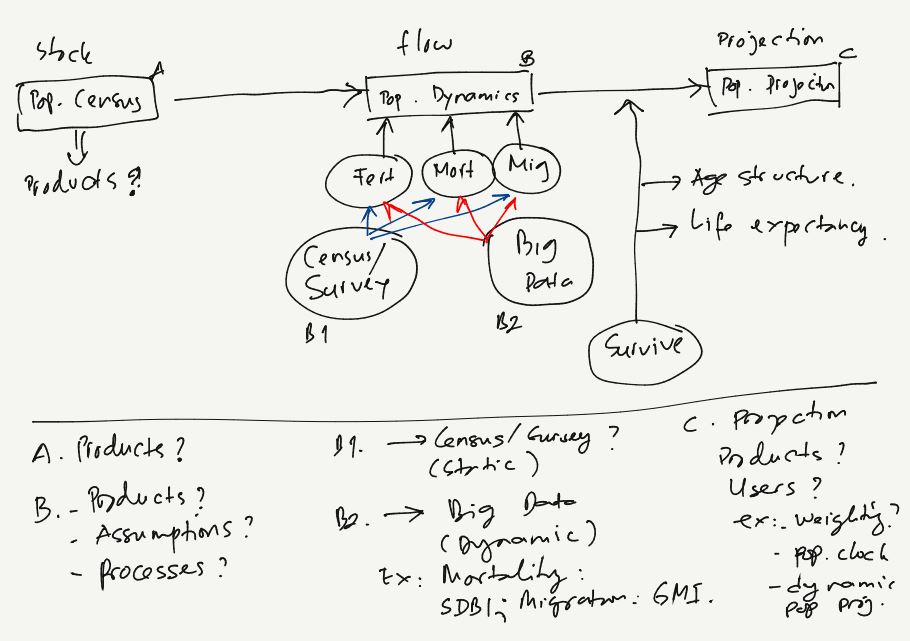 Stock
Pop. Census
A
Products?
flow
Pop. Dynamics
B
Fert
Mort
Mig
Census/
Survey
B1
Big
Data
B2
Projection
C
Pop. Projectn
Age structure.
Life expectancy.
Survive
A. Products?
B. - Products?
- Assumptions?
- Processes?
B1. → Census/Survey?
(Static)
B2. → Big Data
(Dynamic)
Ex: Mortality:
SDBI; Migration: GMI.
C. Projection
Products?
Users?
ex: - Weighting?
- pop. clock
- dynamic
pop proj.